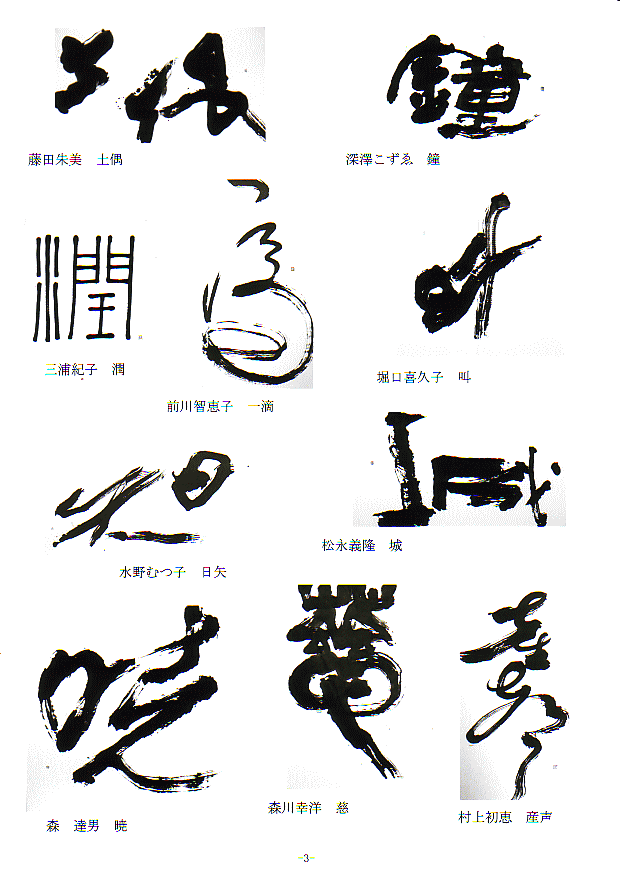 土偶
鐘
藤田朱美　土偶
深澤こずゑ　鐘
潤
一滴
叫
三浦紀子　潤
堀口喜久子　叫
前川智恵子　一滴
城
松永義隆　城
水野むつ子　日矢
暁
森川幸洋　慈
村上初恵　産声
森　達男　暁
-3-